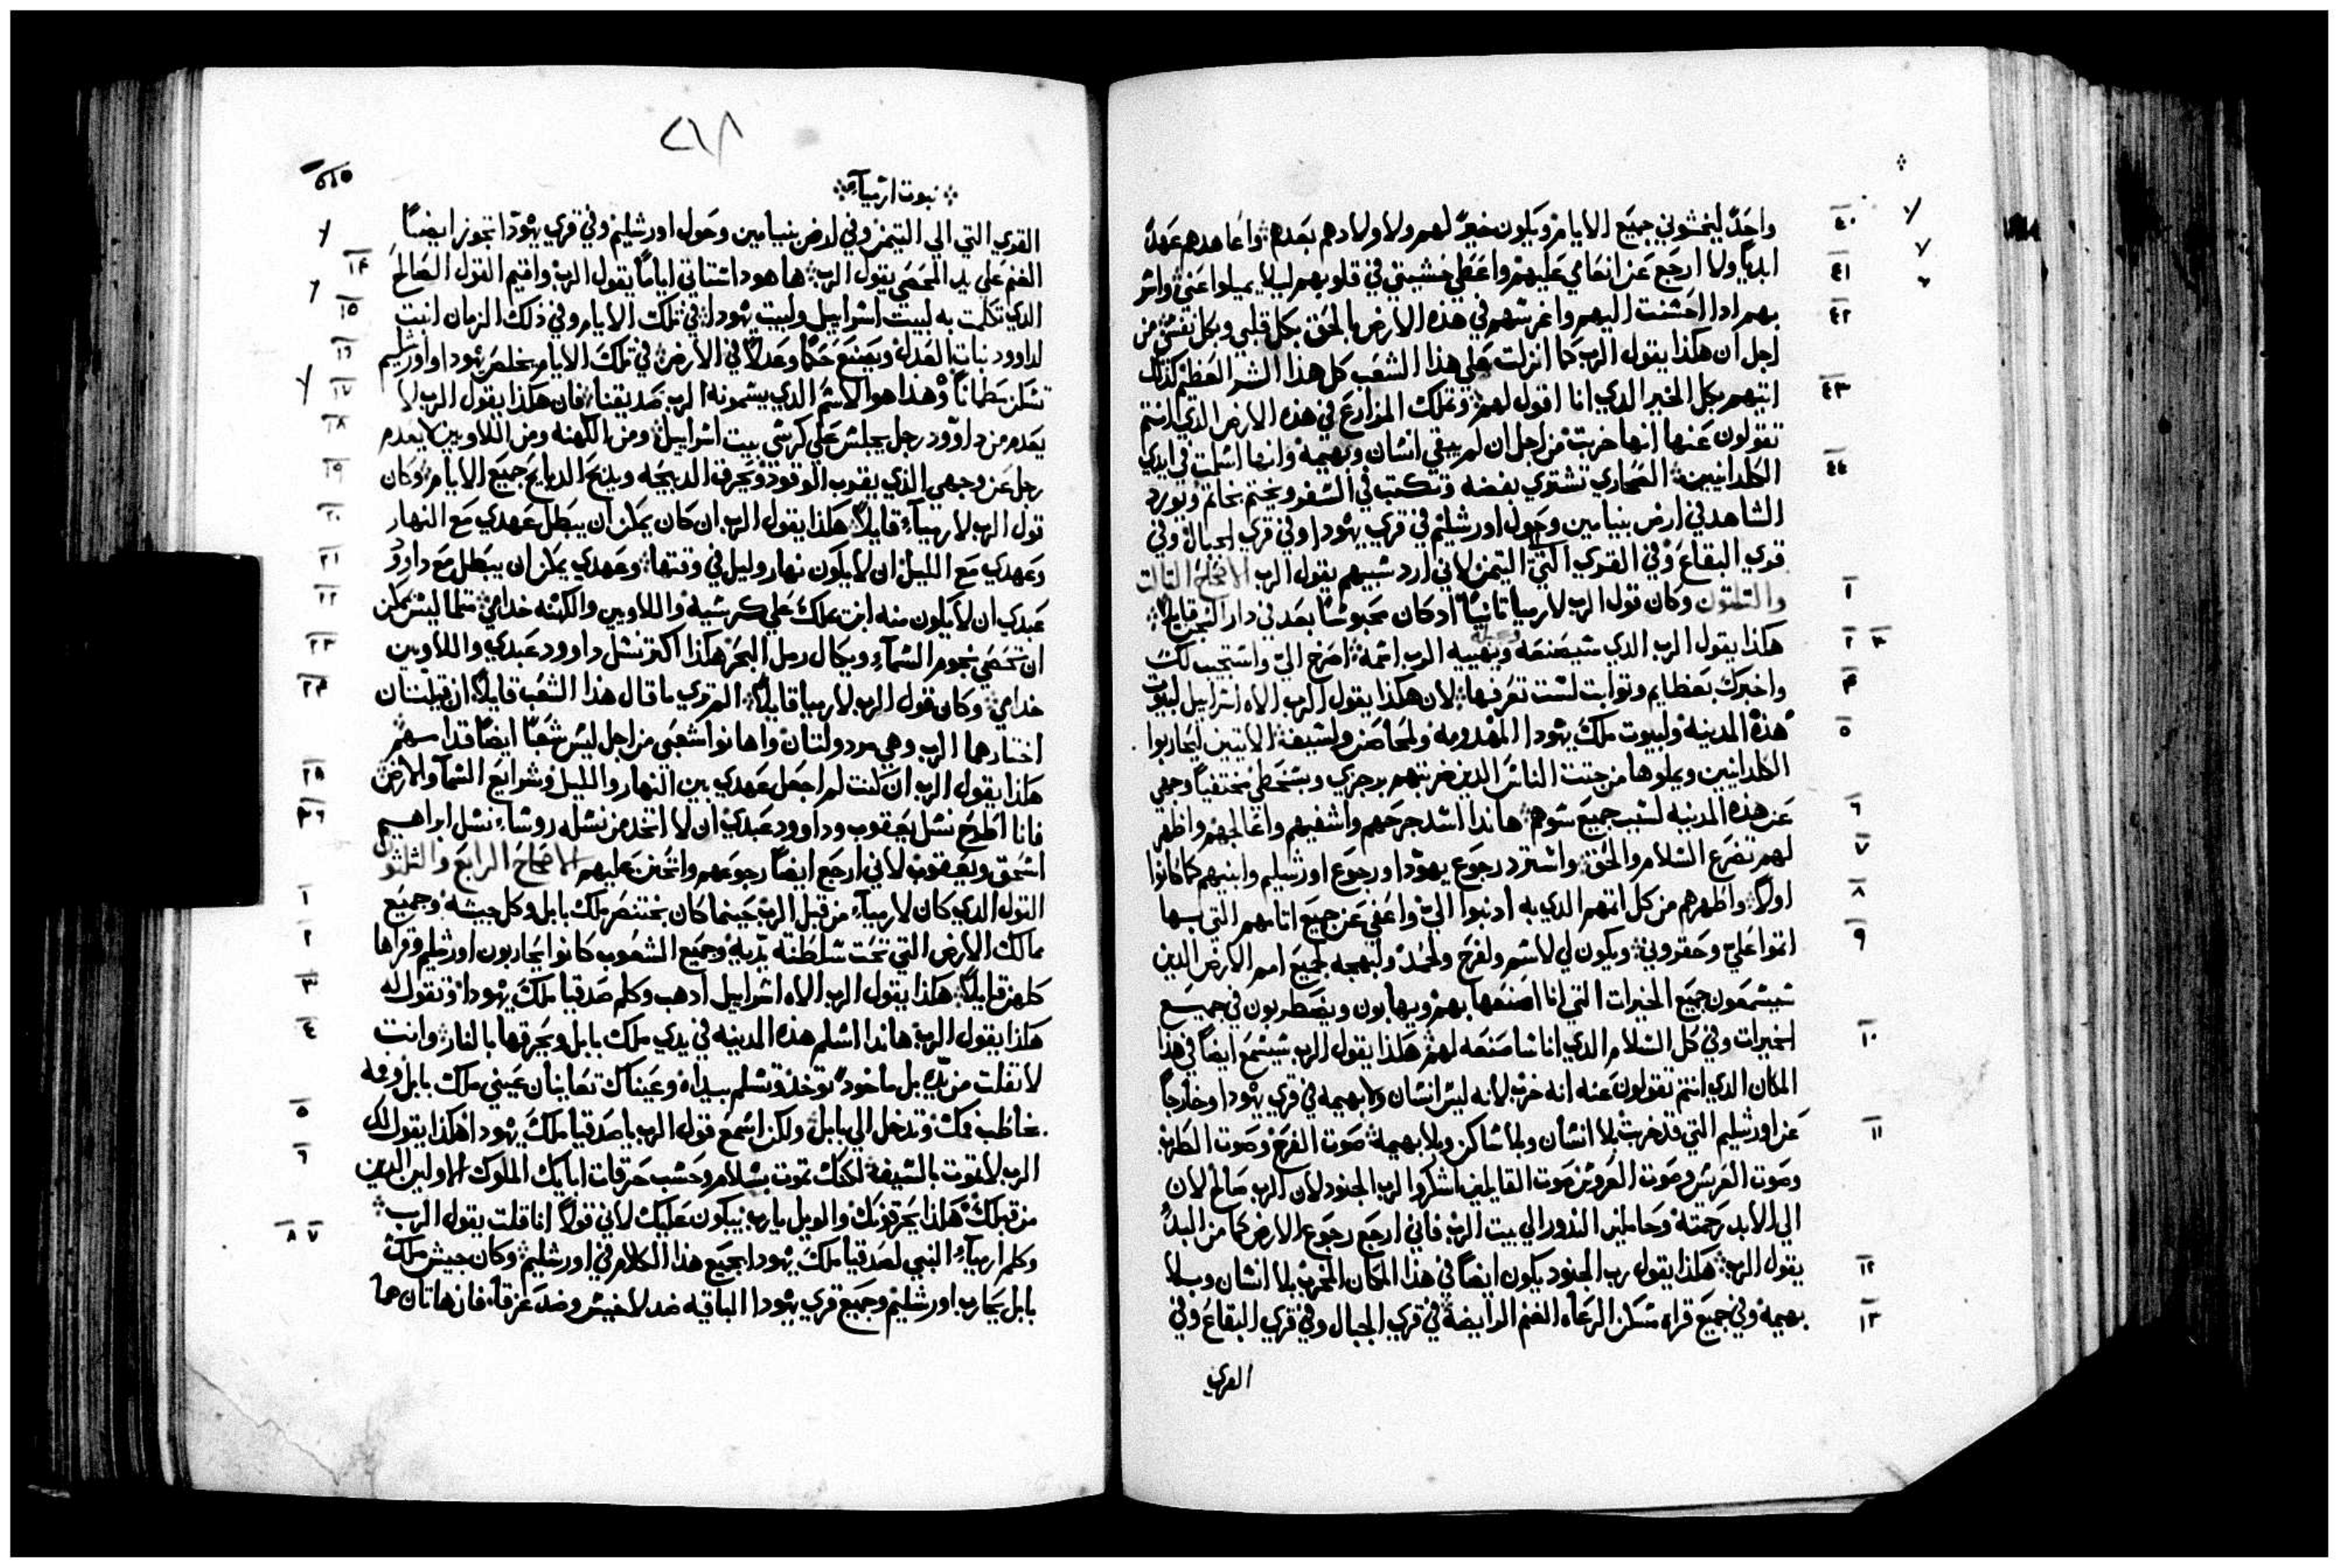 ٤٠ واحدًا ليخشوني جميع الايام ويكون خيرًا لهم ولاولادهم بعدهم واعاهدهم عهدًا
٤١ ابديًا ولا ارجع عن انعامي عليهم واعطي خشيتي في قلوبهم ليلا يميلوا عني واسر
٤٢ بهم اذا احسنت اليهم واغرسهم في هذه الارض بالحق بكل قلبي وبكل نفسي من
اجل ان هكذا يقول الرب كما انزلت علي هذا الشعب كل هذا الشر العظيم كذلك
٤٣ اتيهم بكل الخير الذي انا اقول لهم وتملك المزارع في هذه الارض الذي انتم
تقولون عنها انها خربت من اجل ان لم يبقي انسان وبهيمه وانها اسلمت في ايدي
٤٤ الكلدانيين الصحاري تشتري بفضه وتكتب في السفر ويختم بخاتم ويورد
الشاهد في ارض بنيامين وحول اورشليم في قري يهودا وفي قري الجبال وفي
قري البقاع وفي القري التي الي التيمن لاني ارد سبيهم يقول الرب الاصحاح الثالث
١ والثلثون وكان قول الرب لارميا ثانيًا اذ كان محبوسًا بعد في دار السجن قايلًا
٢ ٣ هكذا يقول الرب الذي سيصنعه ويهييه الرب اسمه اصرخ الي واستجيب لك
٤ واخبرك بعظايم وثوابت لست تعرفها لان هكذا يقول الرب الاه اسراييل لبيوت
٥ هذه المدينه ولبيوت ملك يهودا المهدومه ولمحاصن ولسيف الاتيين ليحاربوا
الكلدانيين ويملوها من جثث الناس الذين ضربتهم برجزي وبسخطي مختفيًا وجهي
٦ عن هذه المدينه لسبب جميع سوهم هانذا اسد جرحهم واشفيهم واعالجهم واظهر
٧ لهم تضرع السلام والحق واسترد رجوع يهودا ورجوع اورشليم وابنيهم كما كانوا
٨ اولًا واطهرهم من كل اثمهم الذي به اذنبوا الي واعفي عن جميع اثامهم التي بها
٩ اثموا علي وحقروني ويكون لي لاسم ولفرح ولحمد ولبهجه لجميع امم الارض الذين
سيسمعون جميع الخيرات التي انا اصنعها بهم ويهابون ويضطربون في جميع
١٠ الخيرات وفي كل السلام الذي انا ساصنعه لهم هكذا يقول الرب سيسمع ايضًا في هذا
المكان الذي انتم تقولون عنه انه خرب لانه ليس انسان ولا بهيمه في قري يهودا وخارجًا
١١ عن اورشليم التي قد خربت بلا انسان وبلا ساكن وبلا بهيمه صوت الفرح وصوت الطرب
وصوت العريس وصوت العروس صوت القايلين اشكروا لرب الجنود لان الرب صالح لان
الي الابد رحمته وحاملين النذور الي بيت الرب فاني ارجع رجوع الارض كما من البدُ
١٢ يقول الرب هكذا يقول رب الجنود يكون ايضًا في هذا المكان الخرب بلا انسان وبلا
١٣ بهيمه وفي جميع قراه مسكن الرعاه الغنم الرابضه في قري الجبال وفي قري البقاع وفي
القري
٢١٨
نبوت ارمياء
القري التي الي التيمن وفي ارض بنيامين وحول اورشليم وفي قري يهودا تجوز ايضًا
١٤ الغنم علي يد المحصي يقول الرب ها هوذا ستاتي ايامًا يقول الرب واقيم القول الصالح
١٥ الذي تكلمت به لبيت اسراييل ولبيت يهودا في تلك الايام وفي ذلك الزمان انبت
١٦ لداوود نبات العدل ويصنع حكمًا وعدلًا في الارض في تلك الايام يخلص يهودا واورشليم
١٧ تسكن مطمانًا وهذا هو الاسم الذي يسمونه الرب صديقنا فان هكذا يقول الرب لا
١٨ يعدم من داوود رجل يجلس علي كرسي بيت اسراييل ومن الكهنه ومن اللاويين لا يعدم
١٩ رجل عن وجهي الذي يقرب الوقود ويحرق الذبيحه ويذبح الذبايح جميع الايام وكان
٢٠ قول الرب لارمياء قايلًا هكذا يقول الرب ان كان يمكن ان يبطل عهدي مع النهار
٢١ وعهدي مع الليل ان لا يكون نهار وليل في وقتها وعهدي يمكن ان يبطل مع داوود
٢٢ عبدي ان لا يكون منه ابن يملك علي كرسيه واللاويين والكهنه خدامي مثلما ليس يمكن
٢٣ ان تحصي نجوم السماء ويكال رمل البحر هكذا اكثر نسل داوود عبدي واللاويين
٢٤ خدامي وكان قول الرب لارميا قايلًا الم تري ما قال هذا الشعب قايلًا ان قبيلتان
اختارهما الرب وهي مرذولتان واهانوا شعبي من اجل ليس شعبًا ايضًا قدامهم
٢٥ هكذا يقول الرب ان كنت لم اجعل عهدي بين النهار والليل وشرايع السما والارض
٢٦ فانا اطرح نسل يعقوب وداوود عبدي ان لا اتخد من نسله روساء نسل ابراهيم
اسحق ويعقوب لاني ارجع ايضًا رجوعهم واتحنن عليهم الاصحاح الرابع والثلثون
١ القول الذي كان لارمياء من قبل الرب حينما كان بختنصر ملك بابل وكل جيشه وجميع
٢ ممالك الارض التي تحت سلطنة يديه وجميع الشعوب كانوا يحاربون اورشليم وقراها
٣ كلهن قايلًا هكذا يقول الرب الاه اسراييل اذهب وكلم صدقيا ملك يهودا وتقول له
٤ هكذا يقول الرب هانذا اسلم هذه المدينه في يدي ملك بابل ويحرقها بالنار وانت
لا تفلت من يده بل ماخوذ توخذ وتسلم بيداه وعيناك تعاينان عيني ملك بابل وفمه
٥ يخاطب فمك وتدخل الي بابل ولكن اسمع قول الرب يا صدقيا ملك يهودا هكذا يقول لك
٦ الرب لا تموت بالسيف لكنك تموت بسلام وحسب حرقات ابايك الملوك الاولين الذين
من قبلك هكذا يحرقونك والويل يا رب يبكون عليك لاني قولًا انا قلت يقول الرب
٧ ٨ وكلم ارمياء النبي لصدقيا ملك يهودا بجميع هذا الكلام في اورشليم وكان جيش ملك
بابل يحارب اورشليم وجميع قري يهودا الباقيه ضد لاخيس وضد عزقا فان هاتان هما